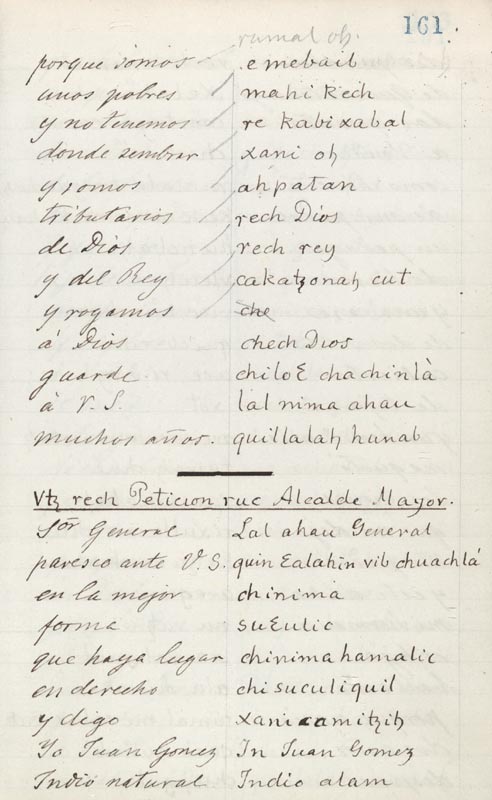 161.
rumal oh.
porque somos e mebail
unos pobres mahi Kech
y no tenemos re kabixabal
donde sembrar xani oh
y somos ahpatan
tributarios rech Dios
de Dios rech rey
y del Rey cakatꜩonah cut
y rogamos che
á Dios chech Dios
guarde chiloƐ chachinlà
à V. S. lal nima ahau
muchos años. quillalah hunab
Vtꜩ rech Peticion ruc Alcalde Mayor.
Sor General Lal ahau General
paresco ante V. S. quin Ɛalahin vib chuachlá
en la mejor chinima
forma suƐulic
que haya lugar chinimahamalic
en derecho chi suculiquil
y digo xani camitꜩih
Yo Juan Gomez In Juan Gomez
Indio natural Indio alam